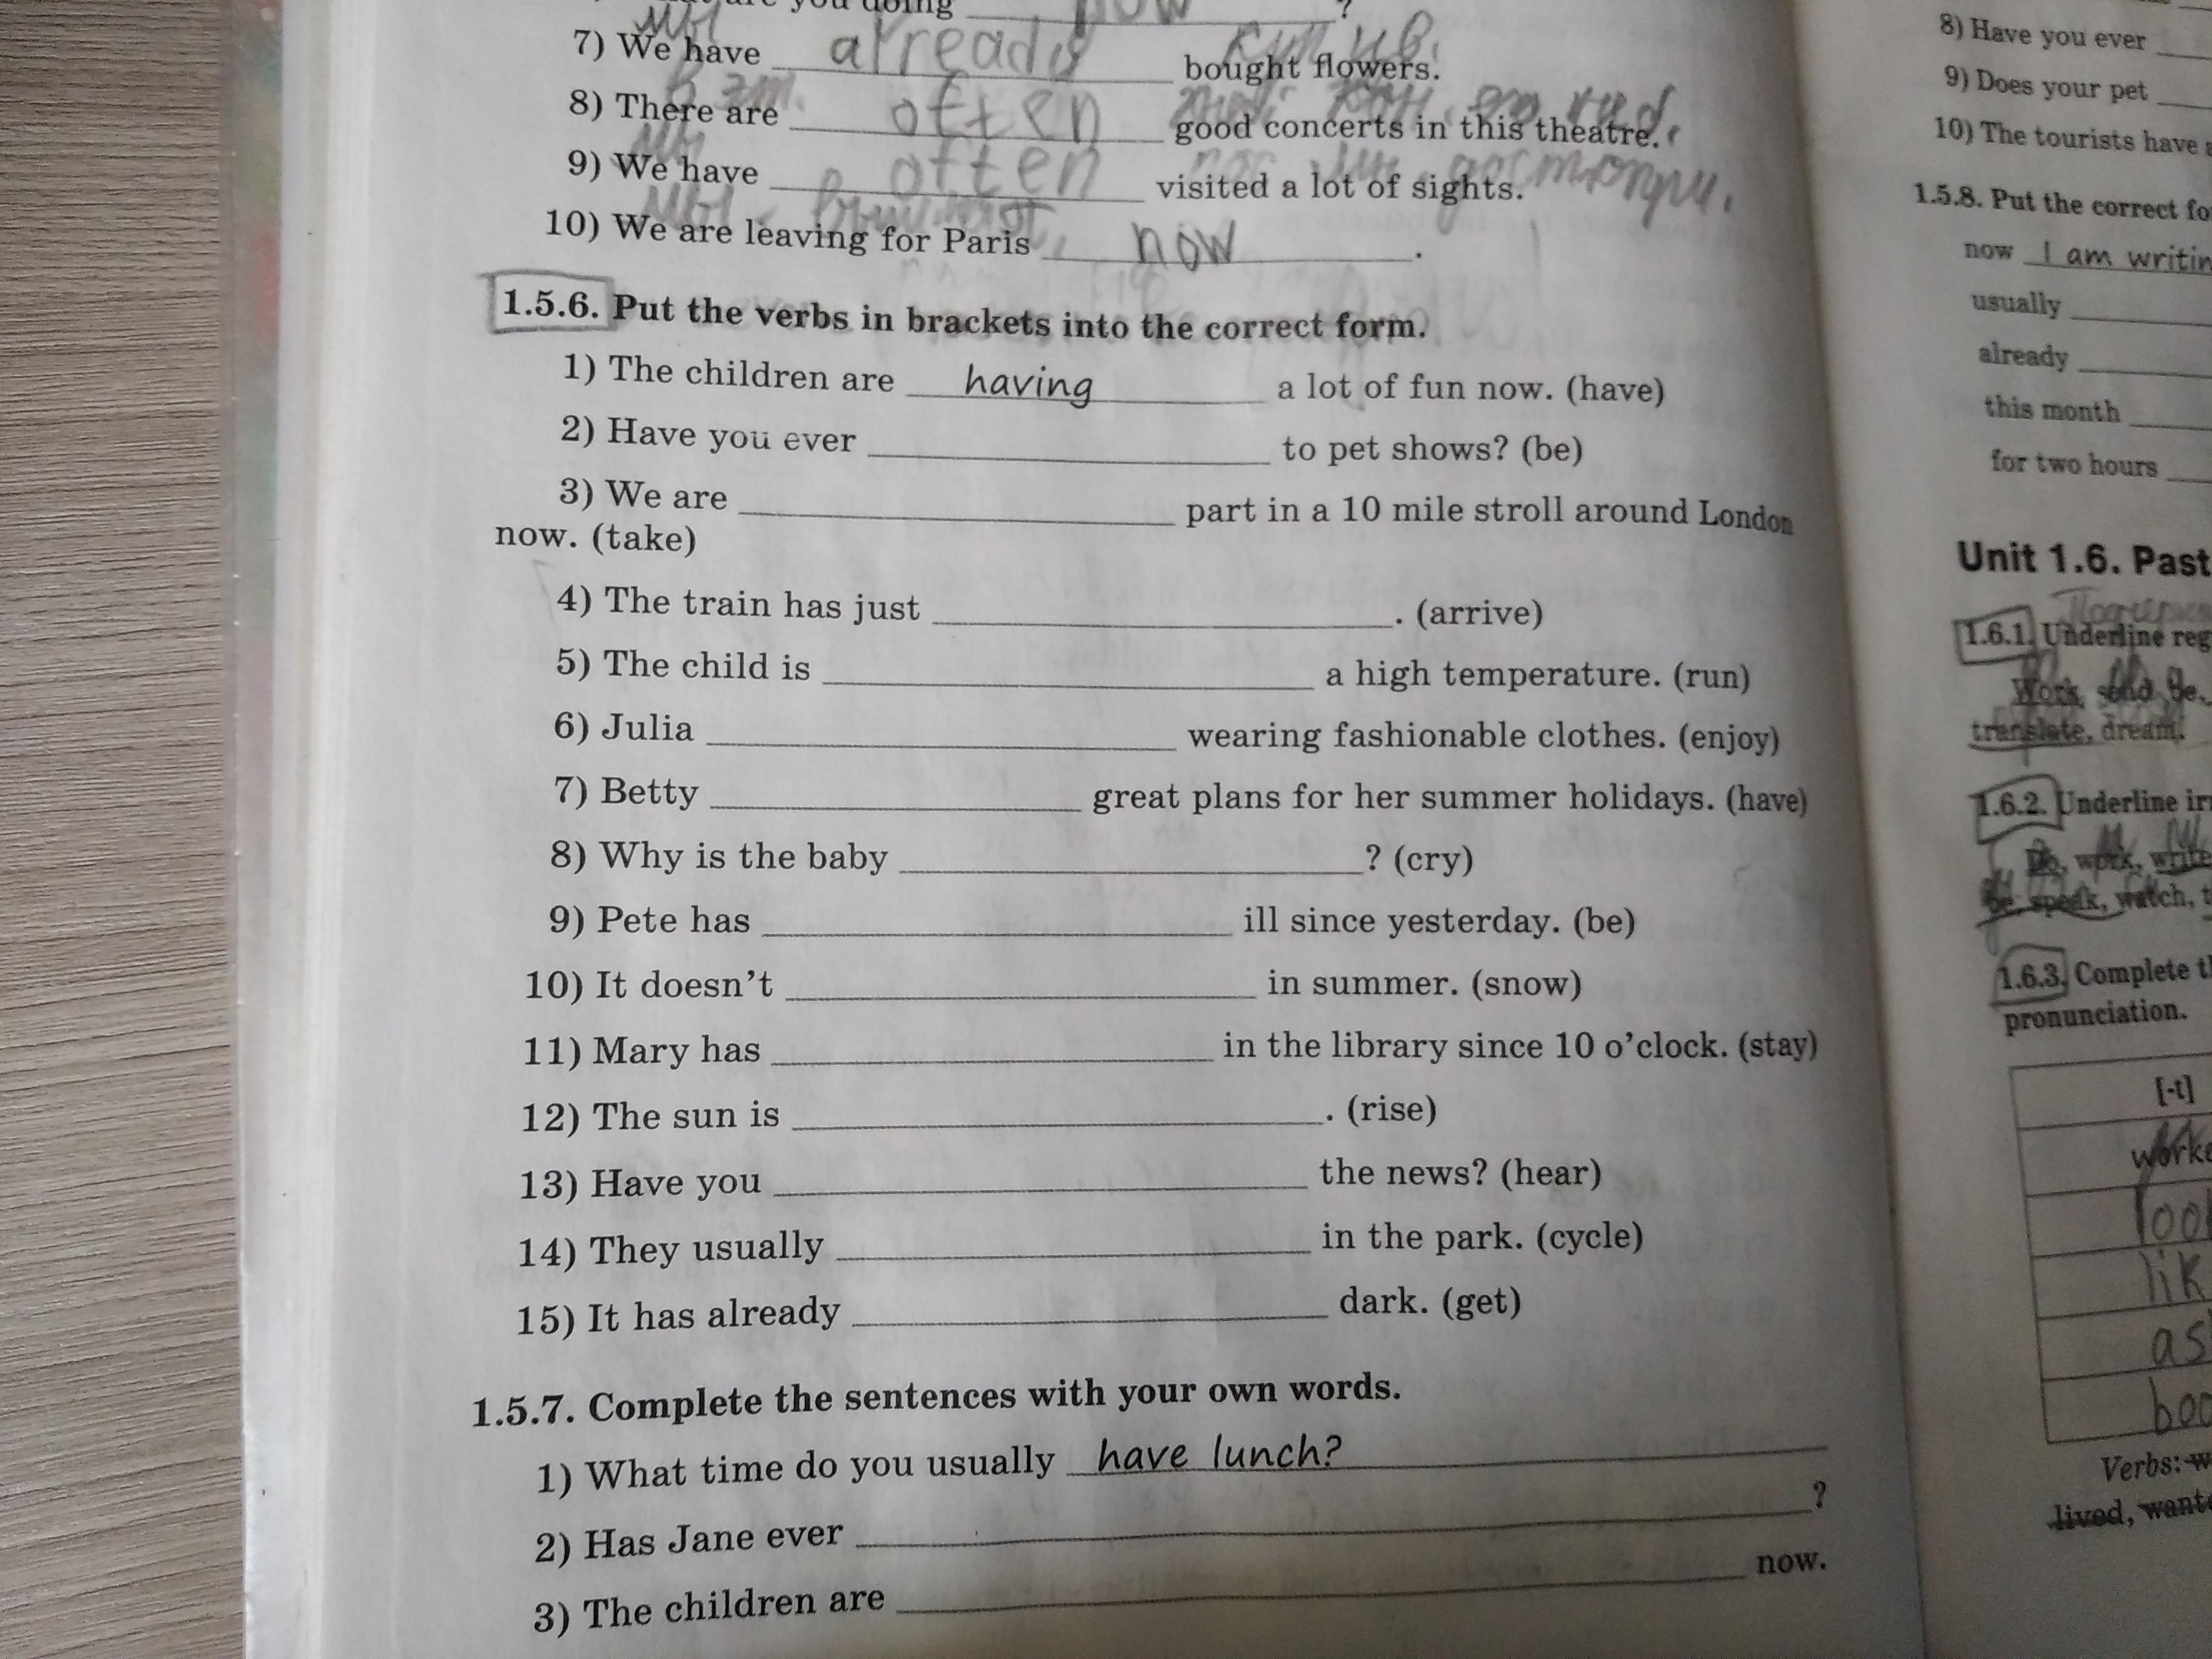 you doing now ?
7) We have already bought flowers.
8) There are often good concerts in this theatre.
9) We have often visited a lot of sights.
10) We are leaving for Paris now .
1.5.6. Put the verbs in brackets into the correct form.
1) The children are having a lot of fun now. (have)
2) Have you ever ____ to pet shows? (be)
3) We are ____ part in a 10 mile stroll around London
now. (take)
4) The train has just ____ . (arrive)
5) The child is ____ a high temperature. (run)
6) Julia ____ wearing fashionable clothes. (enjoy)
7) Betty ____ great plans for her summer holidays. (have)
8) Why is the baby ____ ? (cry)
9) Pete has ____ ill since yesterday. (be)
10) It doesn't ____ in summer. (snow)
11) Mary has ____ in the library since 10 o'clock. (stay)
12) The sun is ____ . (rise)
13) Have you ____ the news? (hear)
14) They usually ____ in the park. (cycle)
15) It has already ____ dark. (get)
1.5.7. Complete the sentences with your own words.
1) What time do you usually have lunch?
2) Has Jane ever ____ ?
3) The children are ____ now.
8) Have you ever
9) Does your pet
10) The tourists have
1.5.8. Put the correct fo
now I am writin
usually
already
this month
for two hours
Unit 1.6. Past
1.6.1. Underline reg
Work, send, be,
translate, dream.
1.6.2. Underline ir
Do, work, write
be, speak, watch, t
1.6.3. Complete t
pronunciation.
[-t]
worke
loo
lik
as
boo
Verbs: w
lived, want